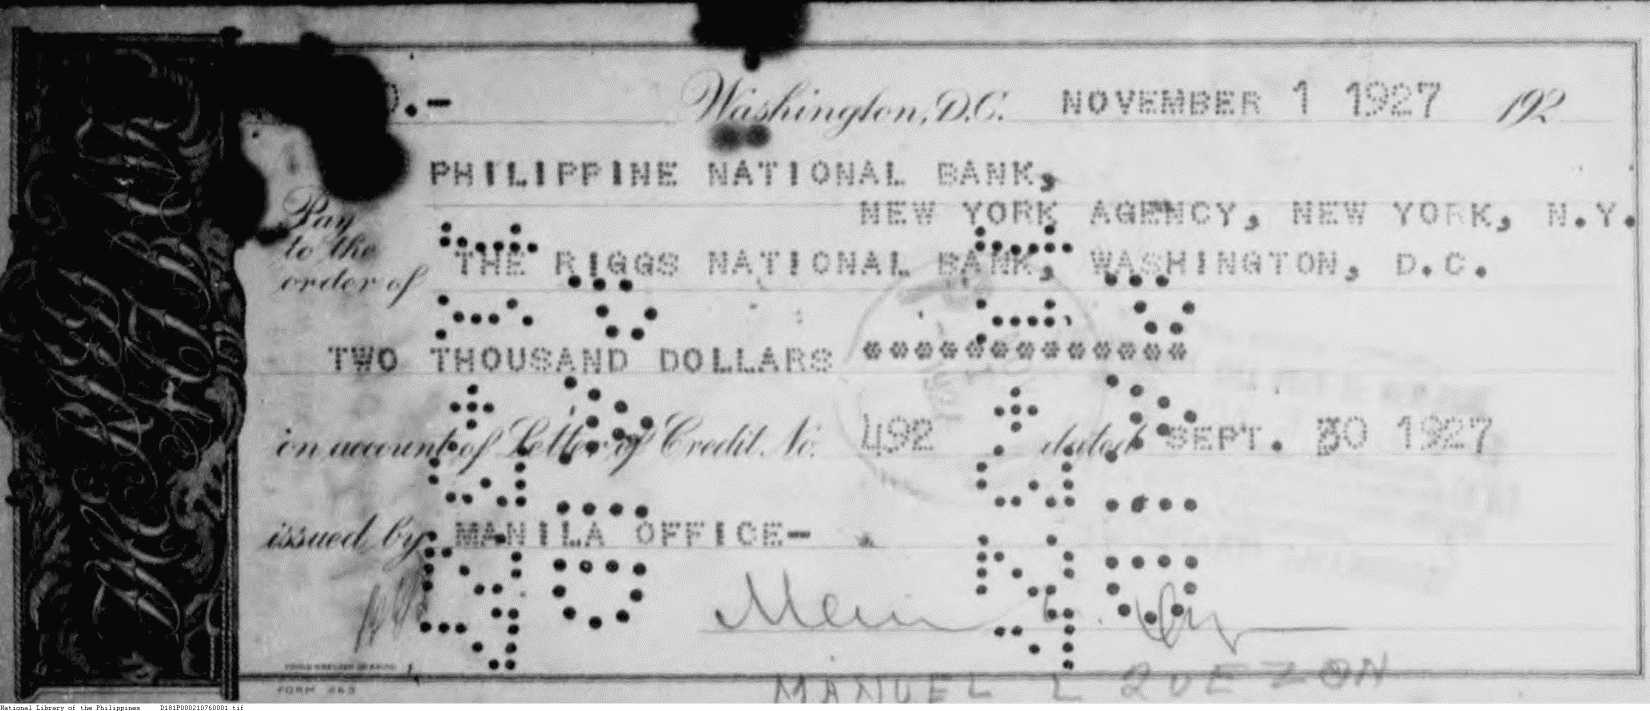 0.- Washington, D.C. NOVEMBER 1 1927 192
PHILIPPINE NATIONAL BANK,
NEW YORK AGENCY, NEW YORK, N.Y.
Pay
to the
order of THE RIGGS NATIONAL BANK, WASHINGTON, D.C.
TWO THOUSAND DOLLARS *************
on account of Letter of Credit No. 492 dated SEPT. 30 1927
issued by MANILA OFFICE-
MANUEL L QUEZON
FORM 463
National Library of the Philippines D181P000210760001.tif